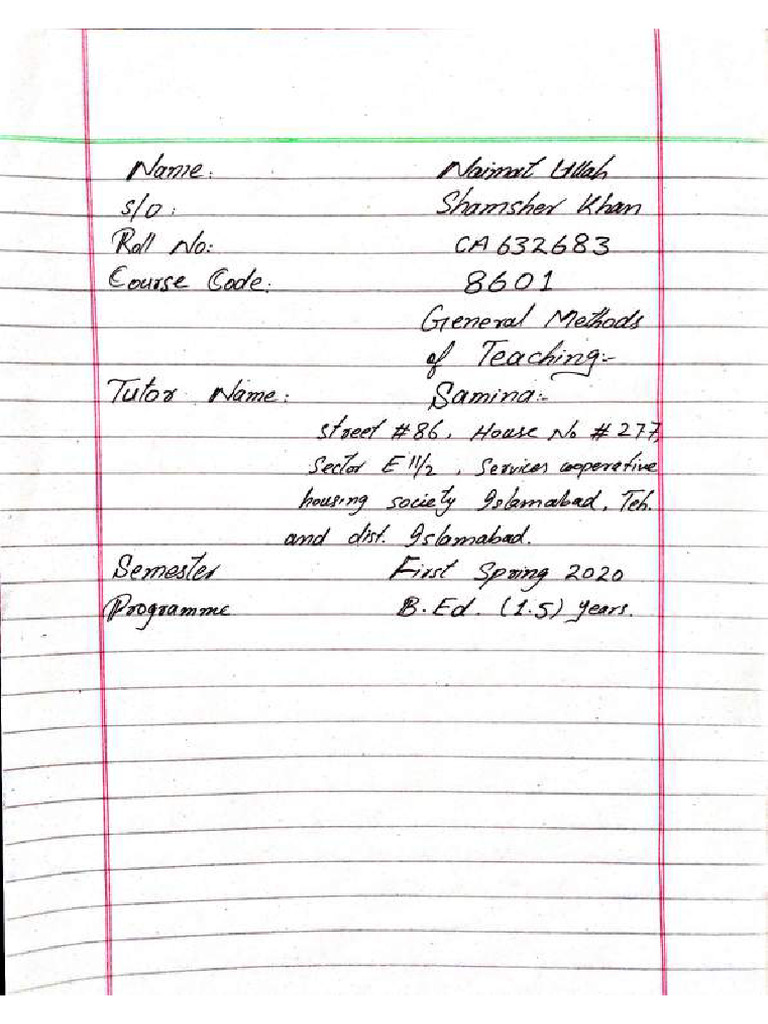 Name: Naimat Ullah
S/O: Shamsher Khan
Roll No: CA632683
Course Code: 8601
General Methods
of Teaching:-
Tutor Name: Samina:-
street #86, House No #277,
Sector E 11/2, Services cooperative
housing society Islamabad, Teh.
and dist. Islamabad.
Semester First Spring 2020
Programme B.Ed. (1.5) years.